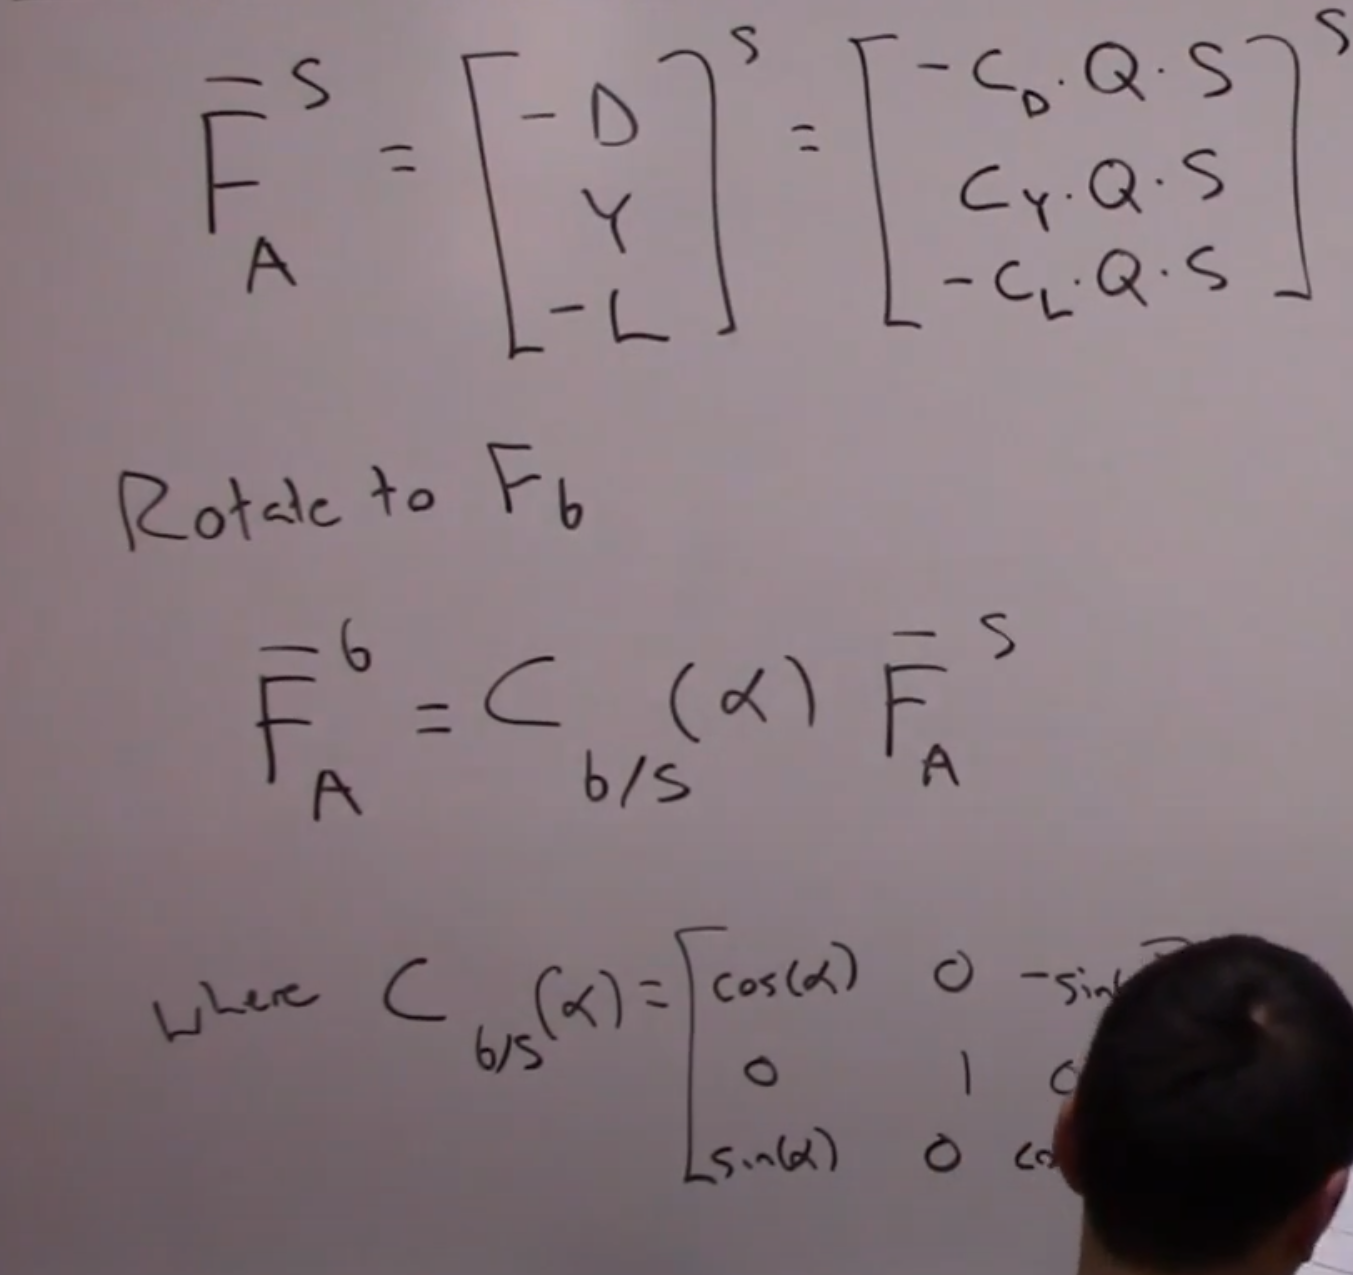 F̄_A^S = [-D Y -L]^S = [-C_D·Q·S C_Y·Q·S -C_L·Q·S]^S
Rotate to F_b
F̄_A^b = C_b/s(α) F̄_A^S
where C_b/s(α) = [cos(α) 0 -sin(
0 1
sin(α) 0 co